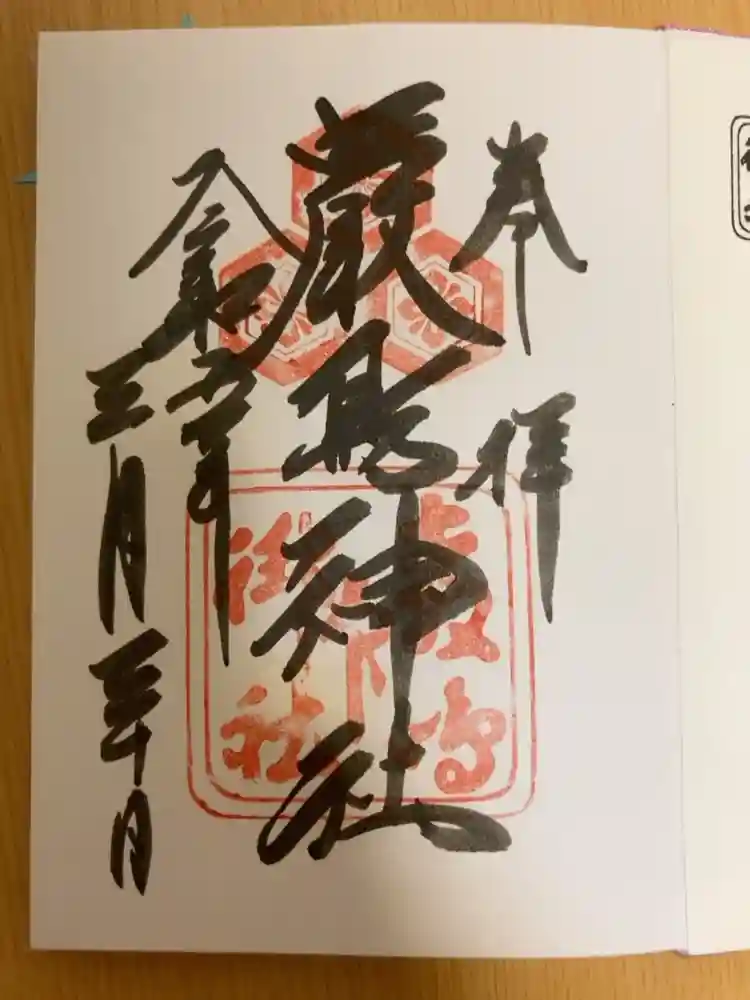 奉拝
嚴島神社
令和五年
三月三十日
嚴島
神社